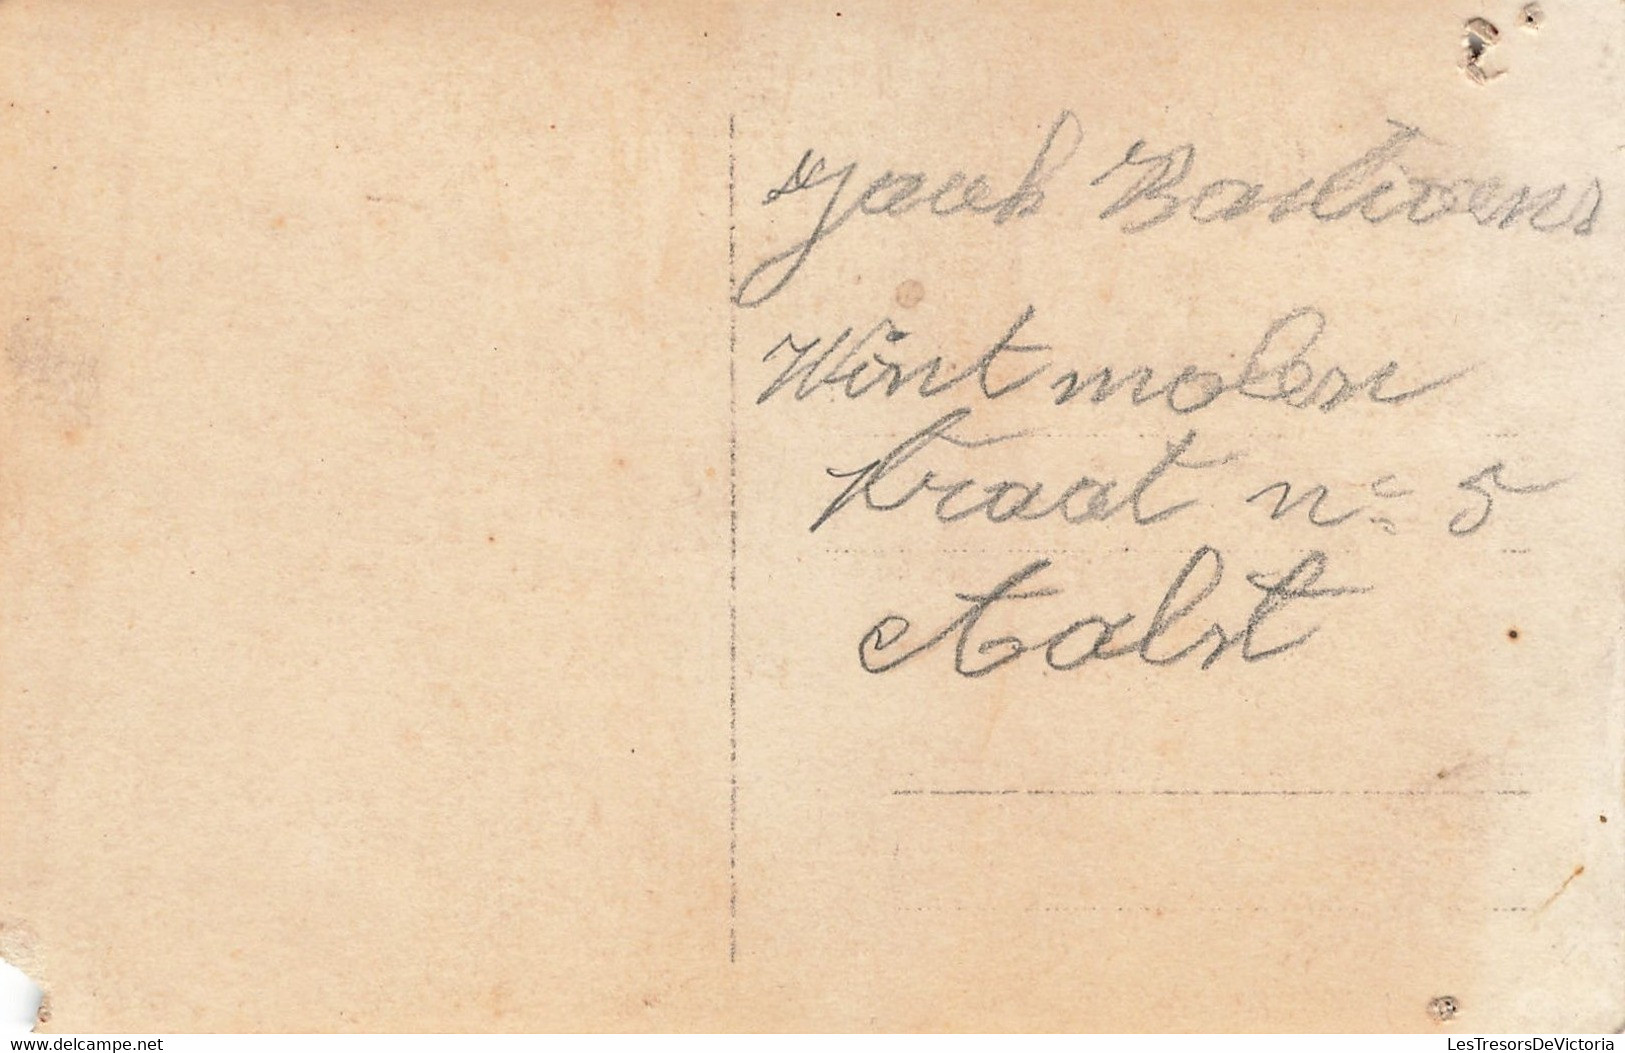 Jacob Bastiaens
Wintmolen
straat n= 5
Aalst
delcampe.net
LesTresorsDeVictoria